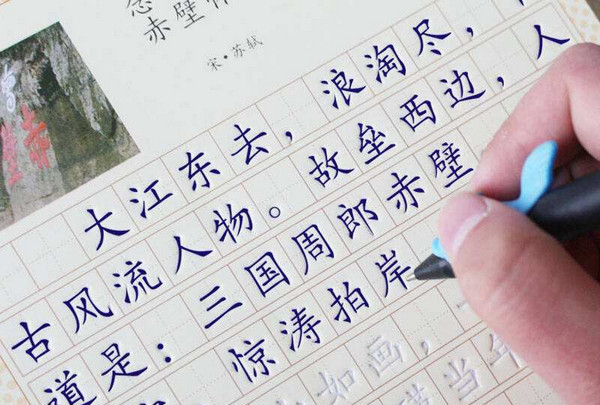 赤壁
宋·苏轼
大江东去，浪淘尽，
古风流人物。故垒西边，人
道是：三国周郎赤壁
惊涛拍岸
如画，
当年